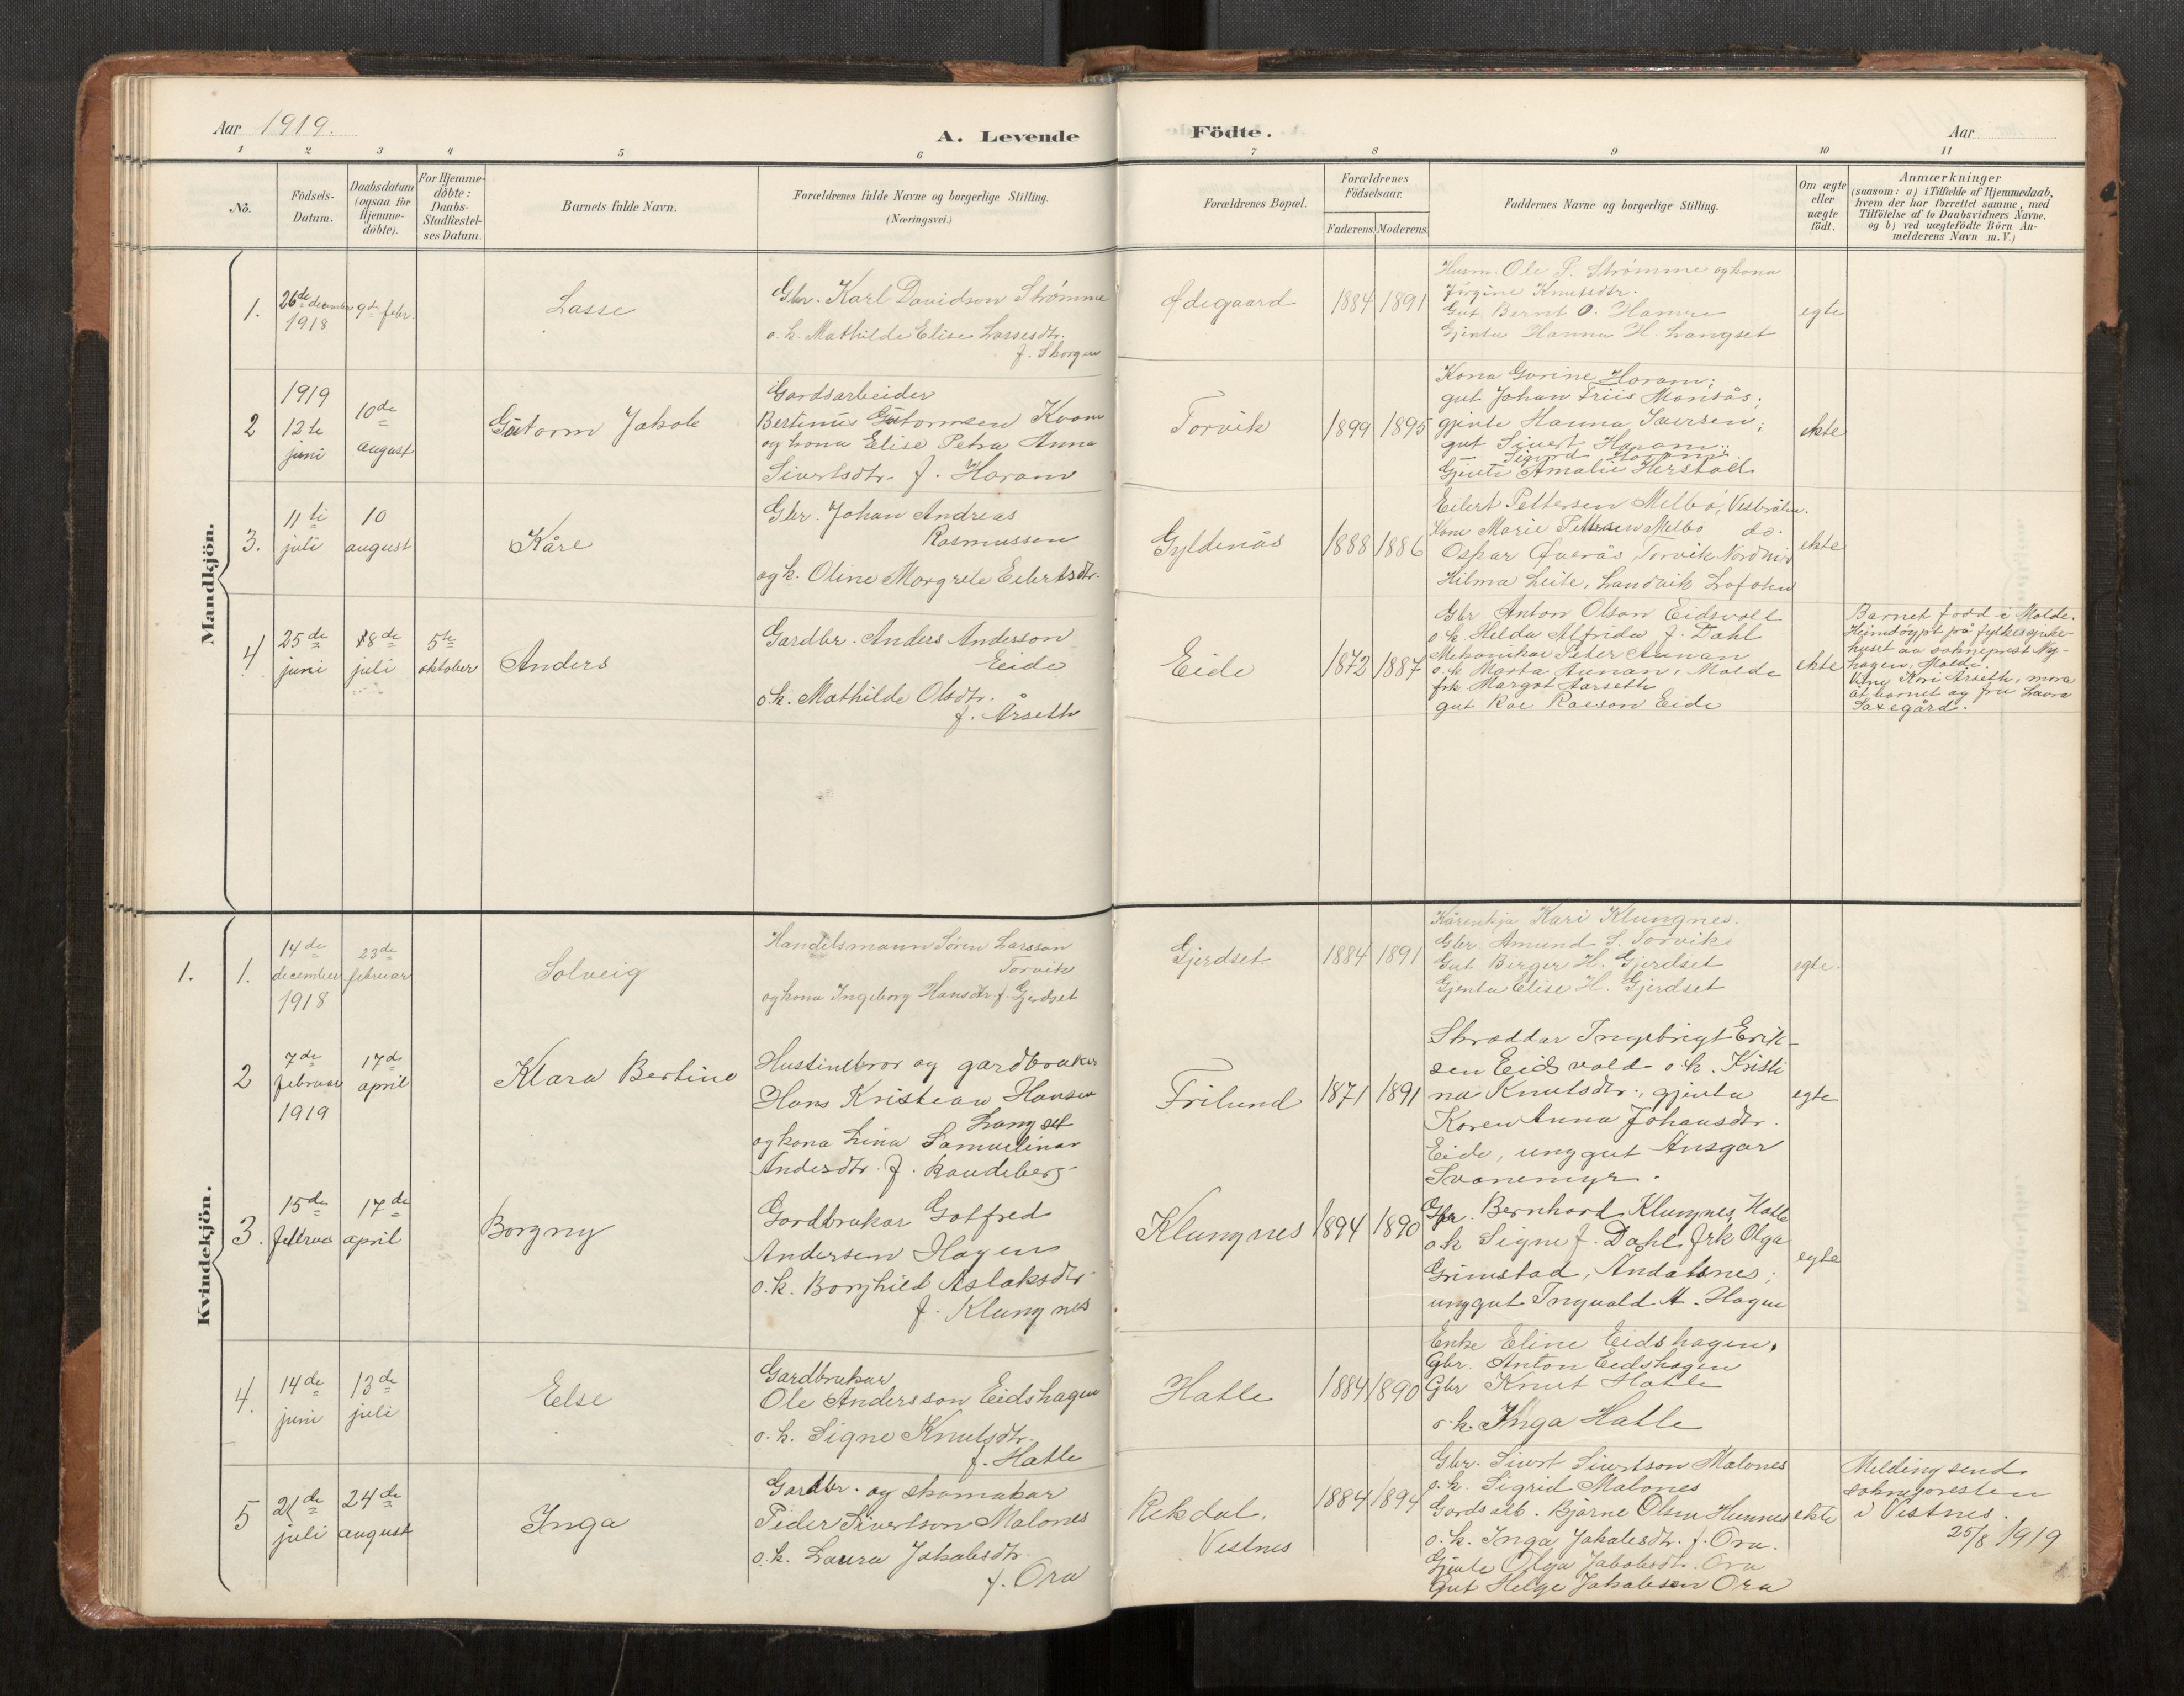 Aar 1919.
A. Levende
Födte.
Aar
1 2 3 4 5 6 7 8 9 10 11
No.
Födsels-
Datum.
Daabsdatum
(ogsaa for
Hjemme-
döbte).
For Hjemme-
döbte:
Daabs-
Stadfæstel-
ses Datum.
Barnets fulde Navn.
Forældrenes fulde Navne og borgerlige Stilling.
(Næringsvei.)
Forældrenes Bopæl.
Forældrenes
Födselsaar.
Faderens. Moderens.
Faddernes Navne og borgerlige Stilling.
Om ægte
eller
uægte
födt.
Anmærkninger
(saasom: a) i Tilfælde af Hjemmedaab,
hvem der har forrettet samme, med
Tilföielse af to Daabsvidners Navne.
og b) ved uægtefödte Börn An-
melderens Navn m. V.)
Mandkjön.
1.
26de december
1918
9de febr.
Lasse
Gbr. Karl Davidson Strømme
o. k. Mathilde Elise Lassesdtr.
f. Skorgen
Ødegaard
1884 1891
Husm. Ole P. Strømme og kona
Jörgine Knutsdtr.
Gut Bernt O. Hamre
Gjenta Hanna H. Langset
egte
2
1919
12te
juni
10de
august
Gutorm Jakob
Gardsarbeider
Bertinus Gutormsen Kvam
og kona Elise Petra Anna
Sivertsdtr. f. Haram
Torvik
1899 1895
Kona Gurine Haram;
gut Johan Friis Monsås;
gjente Hanna Iversen;
gut Sivert Haram;
Sigurd Haram;
Gjente Amalie Herstad
ekte
3.
11te
juli
10
august
Kåre
Gbr. Johan Andreas
Rasmussen
og k. Oline Margrete Eilertsdtr.
Gyldenås
1888 1886
Eilert Pettersen Melbö, Vesterålen.
Kona Marie Pettersen Melbo do.
Oskar Øverås, Torvik Nordmör
Hilma Leite, Landvik Lofoten
ekte
4
25de
juni
18de
juli
5te
oktober
Anders
Gardbr. Anders Anderson
Eide
o. k. Mathilde Olsdtr.
f. Årseth
Eide
1872 1887
Gbr Anton Olson Eidsvolt
o. k. Helda Alfrida f. Dahl
Mekanikar Peter Aunan
o. k. Marta Aunan, Molde
frk Margot Aarseth
gut Roe Roeson Eide
ekte
Barnet född i Molde.
Heimdöypt på fylkessjuke-
huset av sokneprest Ny-
hagen, Molde.
Kari Årseth, mora
åt barnet og fru Laura
Saxegård.
Kvindekjön.
1.
1.
14de
december
1918
23de
februar
Solveig
Handelsmann Søren Larsson
Torvik
og kona Ingeborg Hansdtr f. Gjerdset
Gjerdset
1884 1891
Kårenkja Kari Klungnes.
Gbr. Amund S. Torvik
Gut Birger H. Gjerdset
Gjenta Elise H. Gjerdset
egte.
2
7de
februar
1919
17de
april
Klara Bertine
og gardbruker
Hans Kristian Hansen
Langset
og kona Lina Samueline
Andersdtr. f. Raudeberg
Frilund
1871 1891
Skræddar Ingebrigt Erik-
sen Eidsvold o. k. Kristi
na Knutsdtr.; gjenta
Karen Anna Johansdtr.
Eide, unggut Ansgar
Svanemyr.
egte
3.
15de
februar
17de
april
Borgny
Gardbrukar Gotfred
Andersen Hagen
o. k. Borghild Aslaksdtr
f. Klungnes
Klungnes
1894 1890
Gbr. Bernhard Klungnes, Hatle
o. k Signe f. Dahl, frk Olga
Grimstad, Åndalsnes;
unggut Ingvald A. Hagen
egte
4.
14de
juni
13de
juli
Else
Gardbrukar
Ole Andersson Eidshagen
o. k. Signe Knutsdtr.
f. Hatle
Hatle
1884 1890
Enke Eline Eidshagen,
Gbr. Anton Eidshagen
Gbr Knut Hatle
o. k. Inga Hatle
5
21de
juli
24de
august
Inga
Gardbr. og skomakar
Peder Sivertson Malones
o. k. Laura Jakobsdtr.
f. Ora
Rekdal,
Vestnes
1884 1894
Gbr. Sivert Sivertson Malones
o. k. Sigrid Malones
Gards arb. Bjarne Olsen Hunnes
o. k. Inga Jakobsdtr. f. Ora.
Gjente Olga Jakobsdtr. Ora
Gut Helge Jakobsen Ora
ekte
Melding send
soknepresten
i Vestnes.
25/8 1919